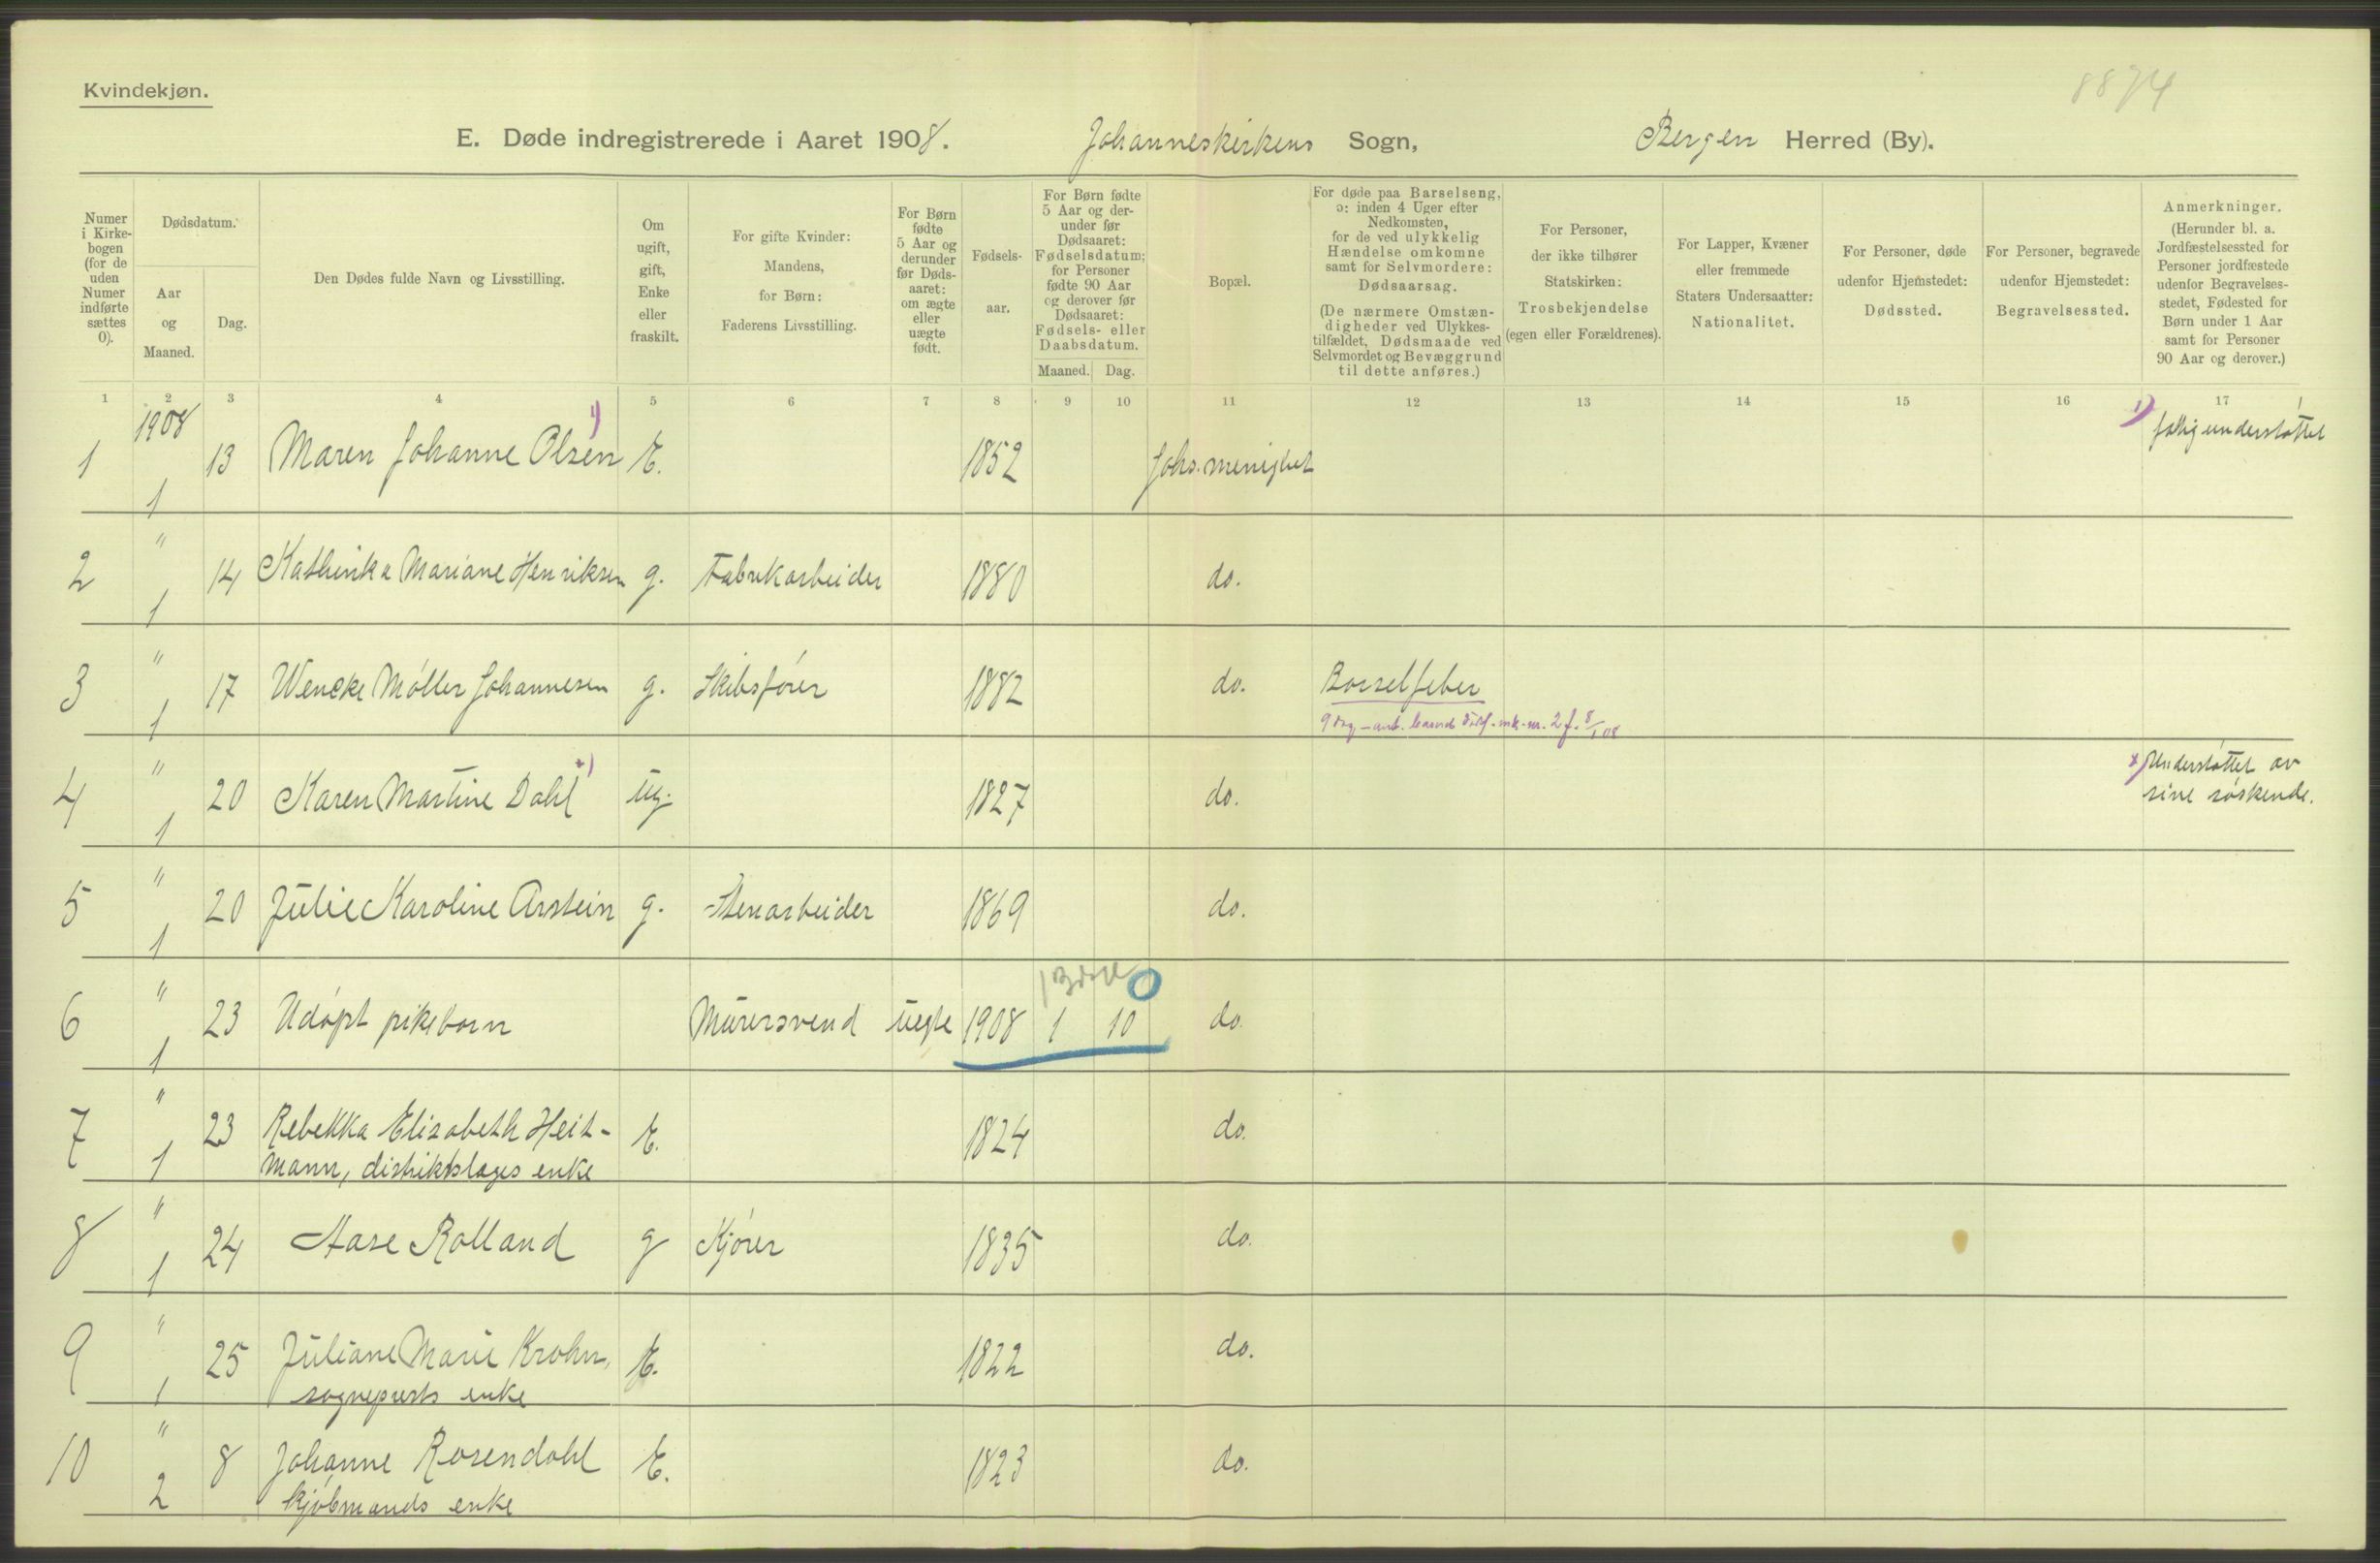 Kvindekjøn.
8874
E. Døde indregistrerede i Aaret 1908. Johanneskirkens Sogn, Bergen Herred (By).
Numer i Kirke-bogen (for de uden Numer indførte sættes 0).
Dødsdatum.
Aar og Maaned.
Dag.
Den Dødes fulde Navn og Livsstilling.
Om ugift, gift, Enke eller fraskilt.
For gifte Kvinder: Mandens, for Børn: Faderens Livsstilling.
For Børn fødte 5 Aar og derunder før Døds-aaret: om ægte eller uægte født.
Fødsels-aar.
For Børn fødte 5 Aar og der-under før Dødsaaret: Fødselsdatum; for Personer fødte 90 Aar og derover før Dødsaaret: Fødsels- eller Daabsdatum.
Maaned. Dag.
Bopæl.
For døde paa Barselseng, ɔ: inden 4 Uger efter Nedkomsten, for de ved ulykkelig Hændelse omkomne samt for Selvmordere: Dødsaarsag.
(De nærmere Omstæn-digheder ved Ulykkes-tilfældet, Dødsmaade ved Selvmordet og Bevæggrund til dette anføres.)
For Personer, der ikke tilhører Statskirken: Trosbekjendelse (egen eller Forældrenes).
For Lapper, Kvæner eller fremmede Staters Undersaatter: Nationalitet.
For Personer, døde udenfor Hjemstedet: Dødssted.
For Personer, begravede udenfor Hjemstedet: Begravelsessted.
Anmerkninger. (Herunder bl. a. Jordfæstelsessted for Personer jordfæstede udenfor Begravelses-stedet, Fødested for Børn under 1 Aar samt for Personer 90 Aar og derover.)
1 2 3 4 5 6 7 8 9 10 11 12 13 14 15 16 17
1 1908 1 13 Maren Johanne Olsen 1) E. 1852 Johs. menighet 1) fattigunderstøttet
2 " 1 14 Kathinka Mariane Henriksen g. Fabrikarbeider 1880 do.
3 " 1 17 Wencke Møller Johannesen g. Skibsfører 1882 do. Barselfeber
4 " 1 20 Karen Martine Dahl x) ug. 1827 do. x) Understøttet av
sine søskende.
5 " 1 20 Julie Karoline Arstein g. Stenarbeider 1869 do.
6 " 1 23 Udøpt pikebarn Murersvend uegte 1908 1 10 do.
7 " 1 23 Rebekka Elisabeth Heit- E. 1824 do.
mann, distriktslæges enke
8 " 1 24 Aase Rolland g Kjører 1835 do.
9 " 1 25 Juliane Marie Krohn, E. 1822 do.
sogneprests enke
10 " 2 8 Johanne Rosendahl E. 1823 do.
kjøbmands enke